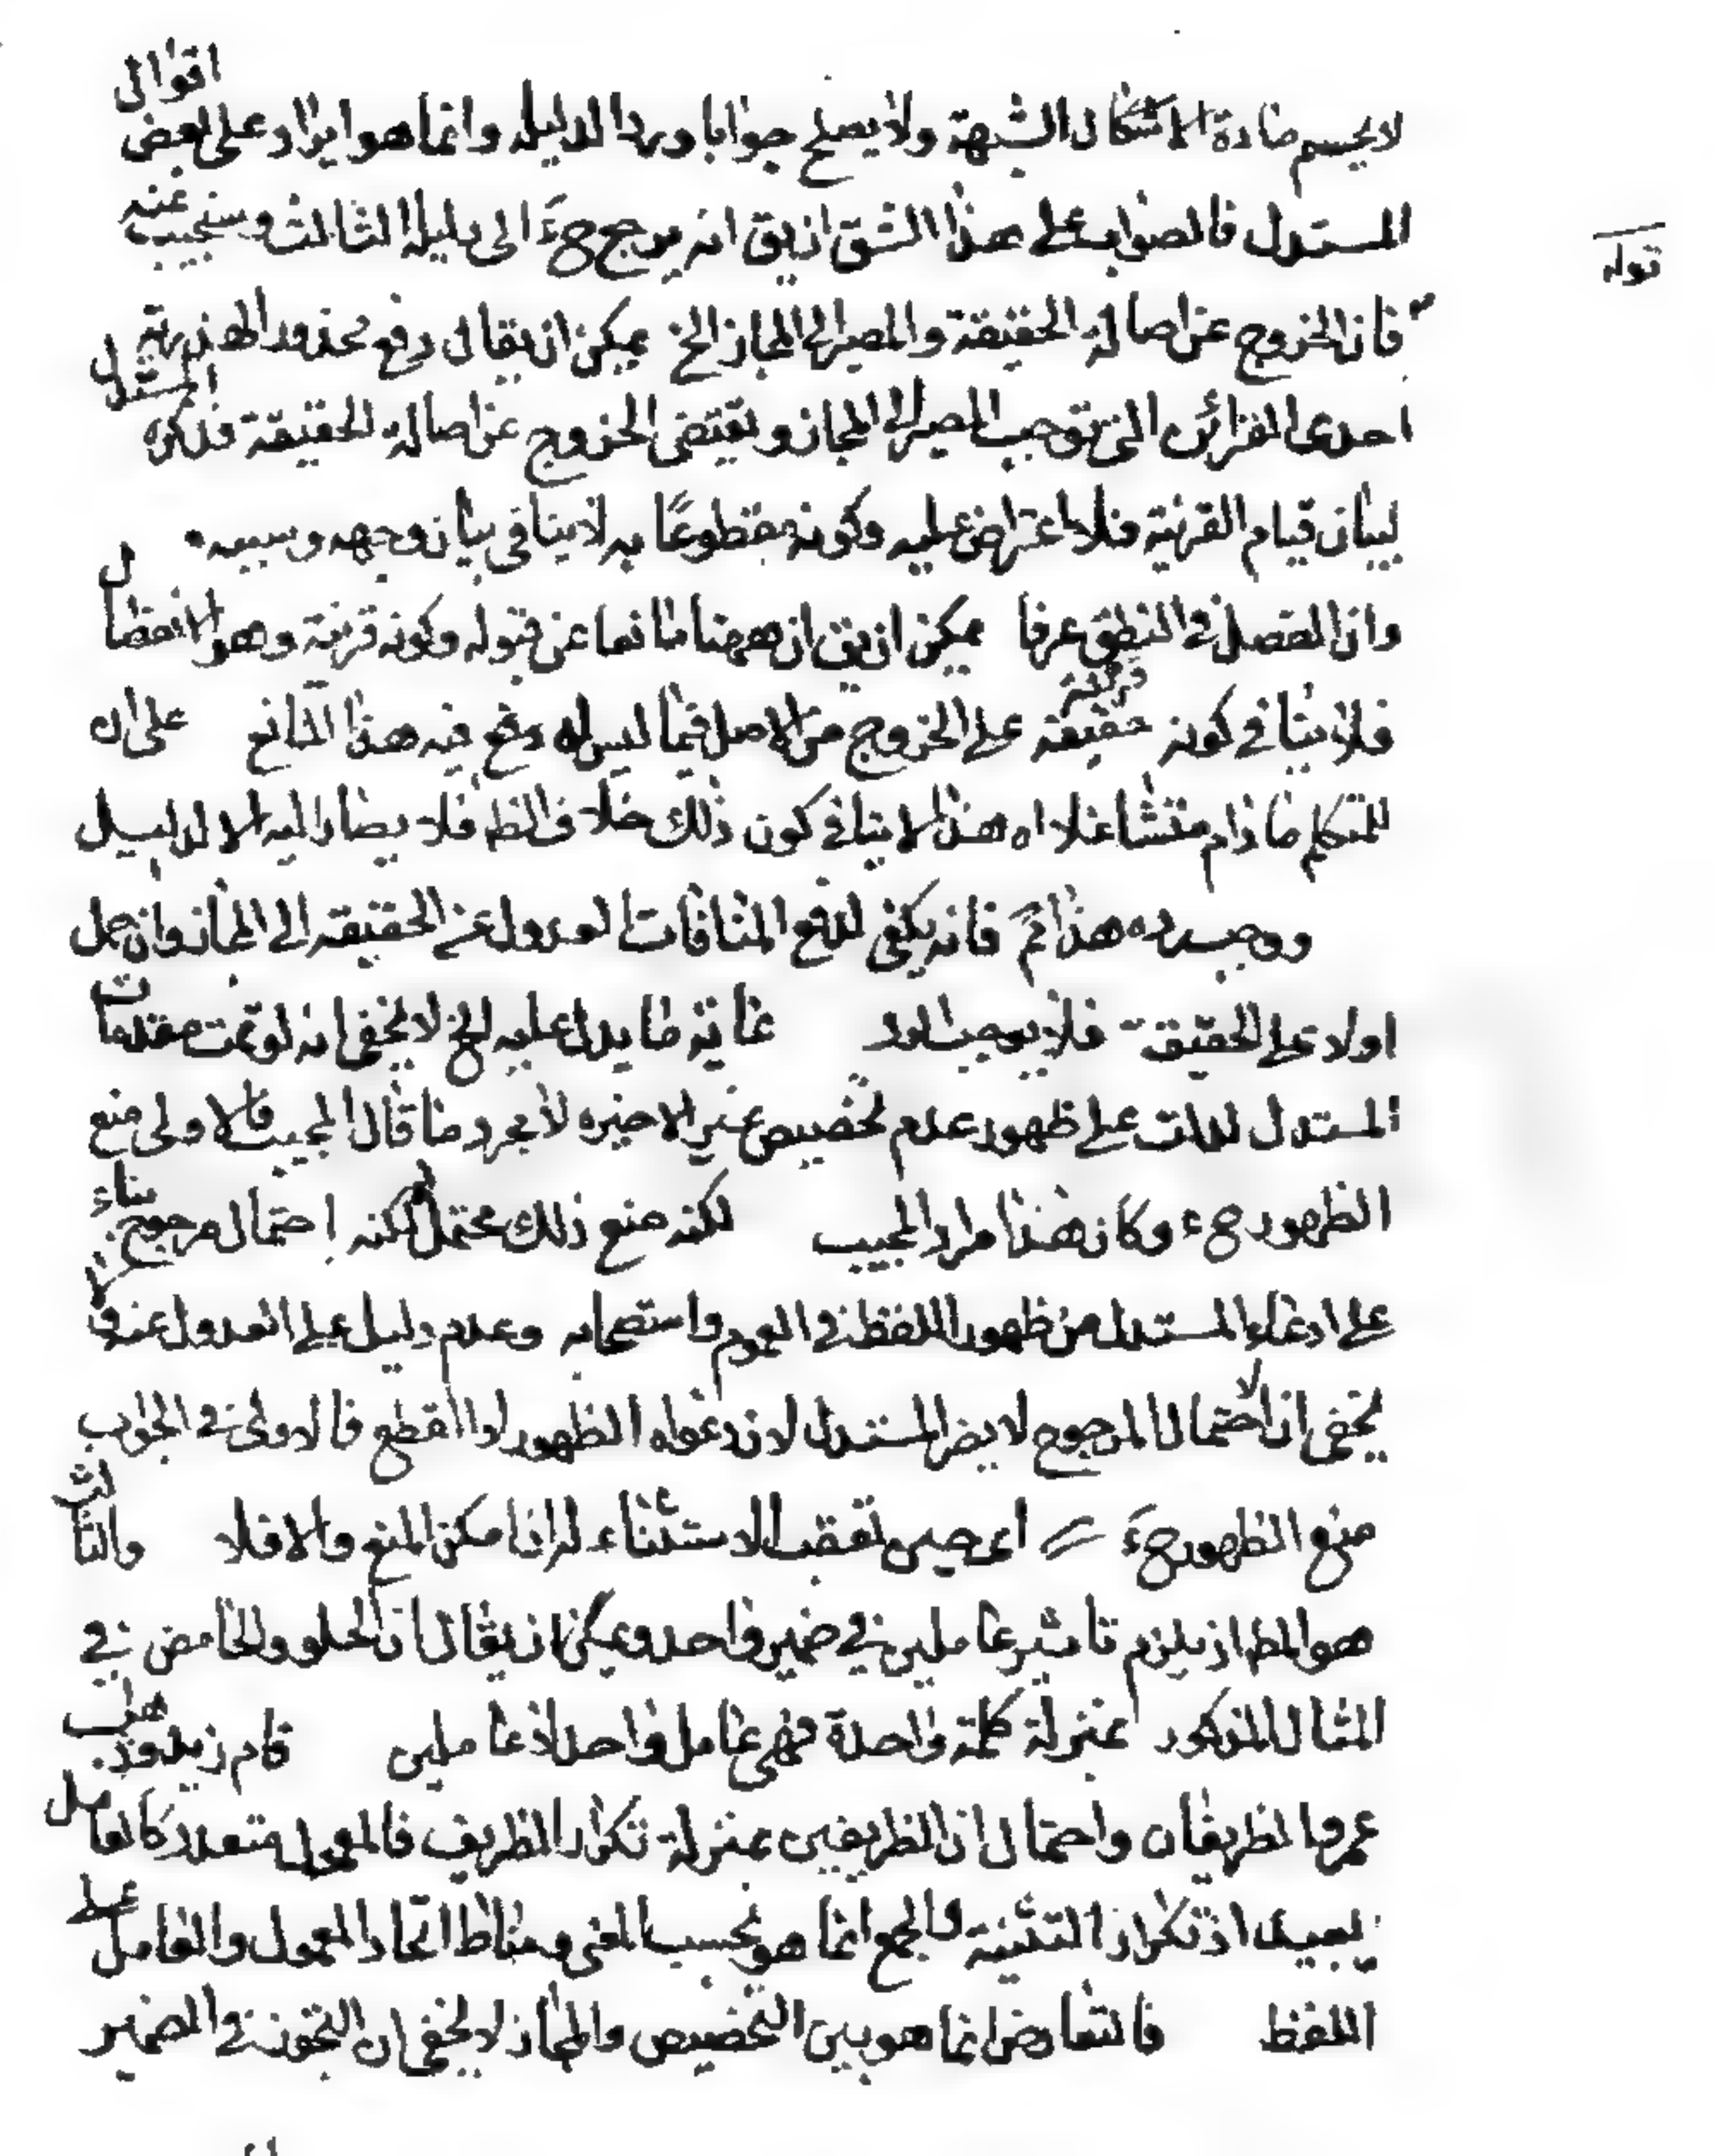 لا يحسم مادة الاشكال الشبهة ولا يصلح جوابا ورد الدليله وانما هو ايراد على بعض اقوال
المستدل فالصواب على هذا الشق ان يق انه يرجع ح الى دليله الثالث وسنجيب عنه
قوله
فان الخروج عن اصالة الحقيقة والمصير الى المجاز الخ يمكن ان يقال دفع محذور الهذرية
احدى القرائن التى توجب المصير الى المجاز ويقتضى الخروج عن اصالة الحقيقة فذكره المستدل
لبيان قيام القرنية فلا اعتراض عليه وكونه مقطوعًا به لا ينافى بيان وجهه وسببه
وان الفصل فى النطق عرفا يمكن ان يق ان ههنا مانعا عن قبوله وكونه قرنية وهو الانفصال
فلا ينافى كونه حقيقة قرنية على الخروج من الاصل فيما ليس فيه هذا المانع على ان
للتكلم ما دام متشاغلا اه هذا لا ينافى كون ذلك خلاف الظ فلا يصار اليه الا لدليل
ووجب رده هذا ثم فانه يكفى لدفع المنافات العدول عن الحقيقة الى المجاز وان حمل
اولا على الحقيقة فلا يوجب الرد غاية ما يدل عليه الخ لا يخفى انه لو تمت مقدمات
المستدل لدلت على ظهور عدم تخصيص غير الاخيره لا مجرد ما قال المجيب فالاولى منع
الظهور ح وكان هذا مراد المجيب لكنه منع ذلك محتمل لكنه احتمال مرجوح بناء
على ادعاء المستدل من ظهور اللفظ فى العموم واستصحابه وعدم دليل على العدول عنه ولا
يخفى ان الاحتمال المرجوح لا يضر المستدل لان دعواه الظهور لا القطع فالاولى فى الجواب
منع الظهور ح اى حين تعقب الاستثناء له ان امكن المنع والا فلا والثالث
هو المط اذ يلزم تاثير عاملين فى ضمير واحد ويمكن ان يقال ان الحلو والحامض فى
المثال المذكور بمنزلة كلمة واحدة فهى عامل واحد لا عاملين قام زيد وذهب
عمرو الظريفان واحتمال ان الظريفين بمنزلة تكرار الظريف فالمعمول متعدد كالعامل
بعيد اذ تكرار التثنية والجمع انما هو بحسب المعنى ومناط اتحاد المعمول والعامل على
اللفظ فالتعارض انما هو بين التخصيص والمجاز لا يخفى ان التجوز فى الضمير